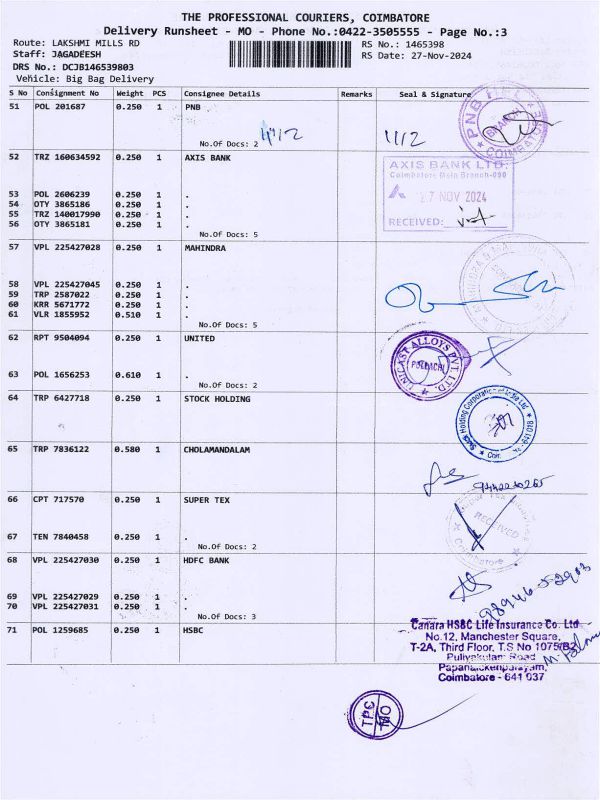 THE PROFESSIONAL COURIERS, COIMBATORE
Delivery Runsheet - MO - Phone No.:0422-3505555 - Page No.:3
Route: LAKSHMI MILLS RD
RS No.: 1465398
Staff: JAGADEESH
RS Date: 27-Nov-2024
DRS No.: DCJB146539803
Vehicle: Big Bag Delivery
S No Consignment No Weight PCS Consignee Details Remarks Seal & Signature
51 POL 201687 0.250 1 PNB
No.Of Docs: 2
PNB
BRANCH
COIMBATORE
52 TRZ 160634592 0.250 1 AXIS BANK
AXIS BANK LTD.
Coimbatore Main Branch-090
27 NOV 2024
RECEIVED:
53 POL 2606239 0.250 1 .
54 OTY 3865186 0.250 1 .
55 TRZ 140017990 0.250 1 .
56 OTY 3865181 0.250 1 .
No.Of Docs: 5
57 VPL 225427028 0.250 1 MAHINDRA
58 VPL 225427045 0.250 1 .
59 TRP 2587022 0.250 1 .
60 KRR 5671772 0.250 1 .
61 VLR 1855952 0.510 1 .
No.Of Docs: 5
62 RPT 9504094 0.250 1 UNITED
UNICAST ALLOYS PVT. LTD.
POLLACHI
63 POL 1656253 0.610 1 .
No.Of Docs: 2
64 TRP 6427718 0.250 1 STOCK HOLDING
Stock Holding Corporation of India Ltd
641 018
65 TRP 7836122 0.580 1 CHOLAMANDALAM
66 CPT 717570 0.250 1 SUPER TEX
RECEIVED
Coimbatore
67 TEN 7840458 0.250 1 .
No.Of Docs: 2
68 VPL 225427030 0.250 1 HDFC BANK
69 VPL 225427029 0.250 1 .
70 VPL 225427031 0.250 1 .
No.Of Docs: 3
71 POL 1259685 0.250 1 HSBC
Canara HSBC Life Insurance Co. Ltd
No.12, Manchester Square,
T-2A, Third Floor, T.S No 1075/B2
Puliyakulam Road
Papanaickenpalayam,
Coimbatore - 641 037
TPC
MO